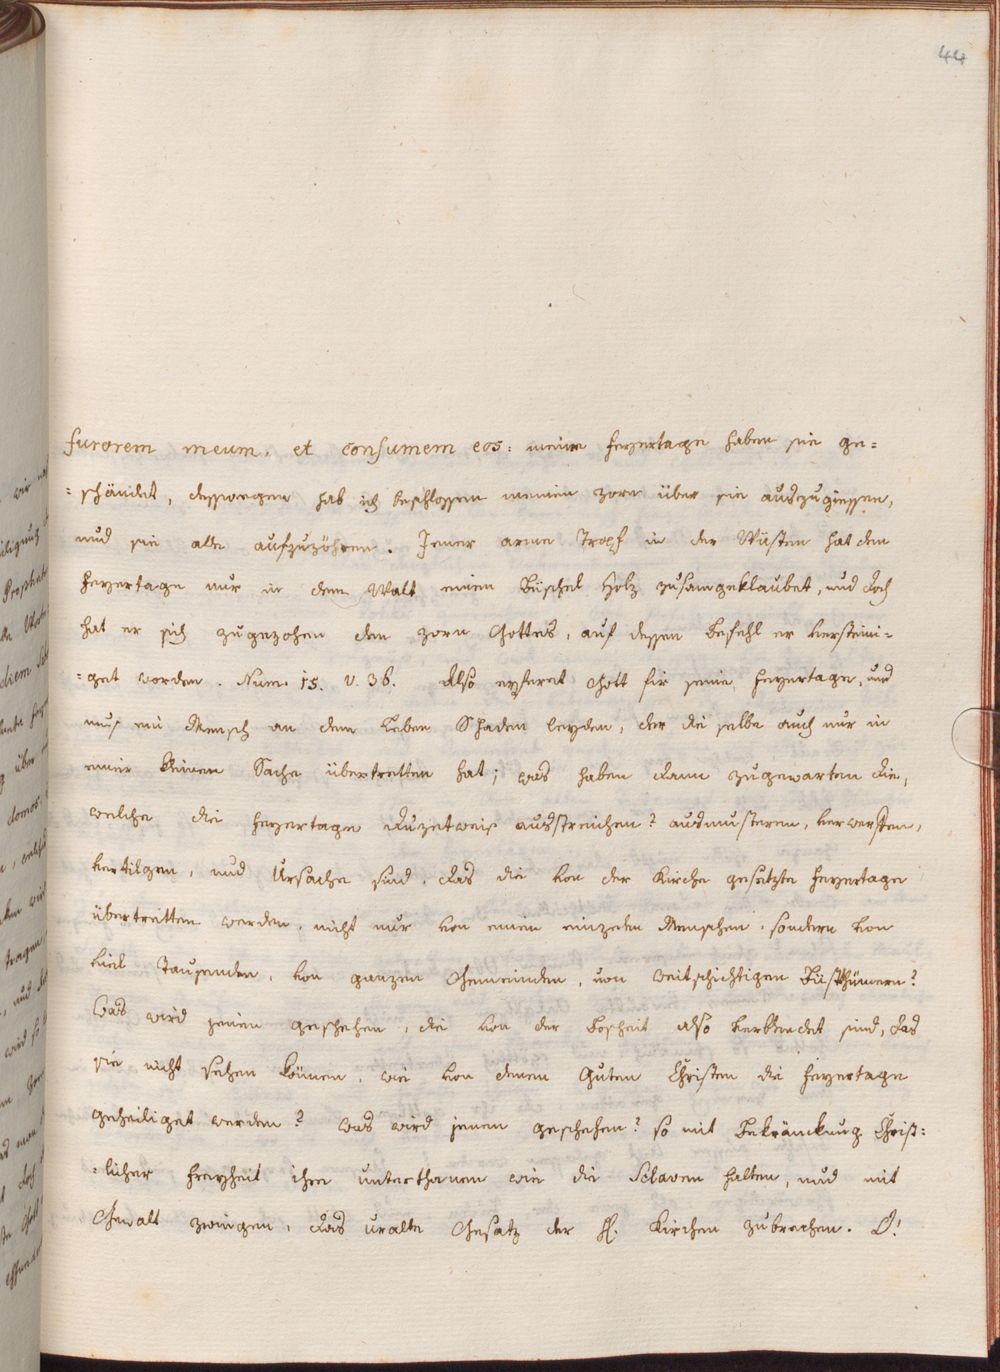 44
furorem meum, et consumem eos: meine feyertage haben sie ge=
=schändet, desswegen hab ich beschlossen meinen zorn über sie auszugiessen,
und sie alle aufzuzöhren. Jener arme Tropf in der Wüsten hat den
feyertage nur in dem Walt einen Büschel Holz zusamgeklaubet, und doch
hat er sich zugezohen den zorn Gottes, auf dessen befehl er versteini=
=get worden. Num. 15. v. 36. Also eyferet Gott fir seine feyertage, und
mus ein Mensch an dem Leben Schaden leyden, der die selbe auch nur in
einer kleinen Sache übertretten hat; was haben dann zugewarten die,
welche die feyertage duzetweis ausstreichen? ausmusteren, verwerffen,
vertilgen, und Ursache sind, das die von der Kirche gesetzte feyertage
übertretten werden, nicht nur von einen einzelen Menschen, sondern von
viel Tausenden, von ganzen Gemeinden, von weitschichtigen Bistthümern?
Was wird jenen geschehen, die von der bosheit also verblendet sind, das
sie nicht sehen können, wie von denen guten Christen die feyertage
geheiliget werden? Was wird jenen geschehen? so mit bekränckung Christ=
=licher freyheit ihre unterthanen wie die Sclaven halten, und mit
Gewalt zwingen, das uralte Gesatz der H. Kirchen zubrechen. O!